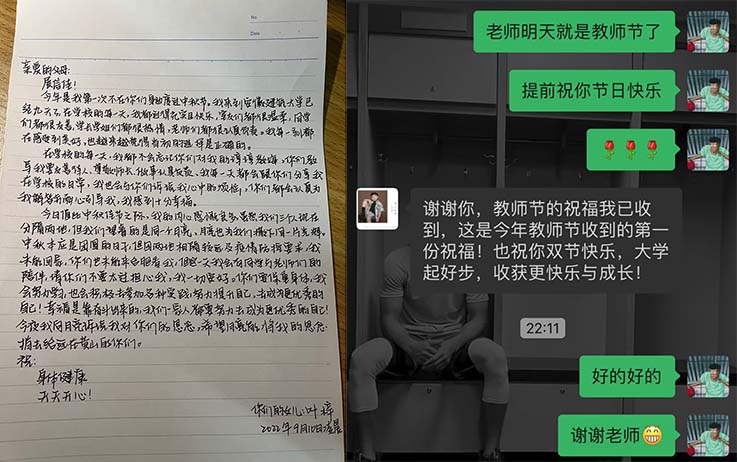 No
Date
亲爱的父母:
展信佳!
今年是我第一次不在你们身边度过中秋节。我来到安徽建筑大学已
经九天了,在学校的每一天,我都过得充实且快乐,室友们都很温柔,同学
们都很友善,学长学姐们都很热情,老师们都很认真负责。我每一刻都
在感受到美好,也越来越觉得
在学校的每一天,我都不会忘记你们对我的谆谆教诲,你们教
导我要友善待人、尊敬师长、做事认真负责。我每一天都会跟你们分享我
在学校的日常,我也会与你们诉说我心中的烦恼,你们都会认真为
我解答,耐心引导我,我感到十分幸福。
今日值此中秋佳节之际,我的内心感慨良多,虽然我们三个人现在
分隔两地,但我们望着的是同一个月亮,月亮也为我们撒下同一片光辉。
中秋本应是团圆的日子,但因两地相隔较远及疫情防控要求,我
未能回家,你们也未能来合肥看我,但这一天我会有同学与老师们的
陪伴,请你们不要太过担心我,我一切安好。你们要保重身体,我
会努力学习,也会积极去参加各种实践,努力提升自己,去成为更优秀的
自己!幸福是靠奋斗出来的,我们一家人都要努力去成为更优秀的自己!
今夜我向月亮诉说我对你们的思念,希望月亮能将我的思念
捎去给远在黄山的你们。
祝:
身体健康
天天开心!
你们的女儿:叶梓
2022年9月10日凌晨
老师明天就是教师节了
提前祝你节日快乐
谢谢你,教师节的祝福我已收
到,这是今年教师节收到的第一
份祝福!也祝你双节快乐,大学
起好步,收获更快乐与成长!
22:11
好的好的
谢谢老师😁